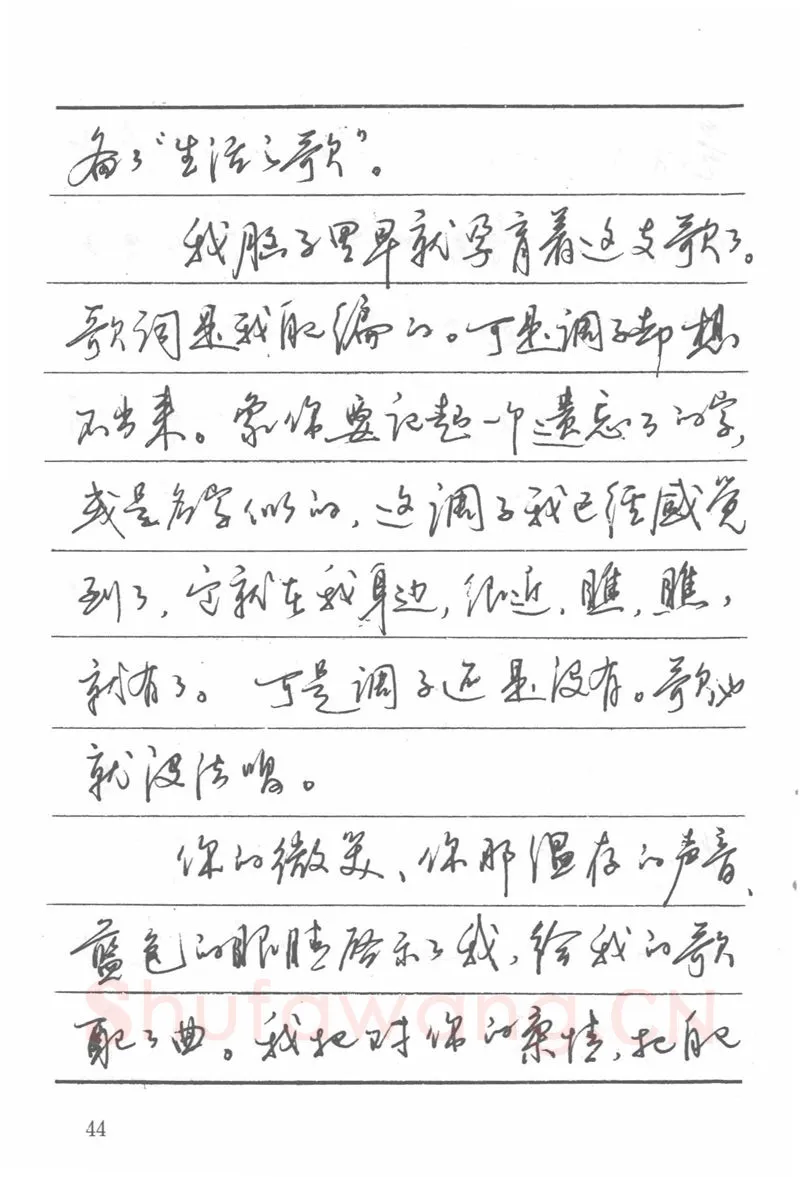 备了“生活之歌”。
我脑子里早就孕育着这支歌了。
歌词是我配编的。可是调子却想
不出来。象你要记起一个遗忘了的字，
或是名字似的，这调子我已经感觉
到了，它就在我身边，很近，瞧，瞧，
就有了。可是调子还是没有。歌也
就没法唱。
你的微笑、你那温存的声音、
蓝色的眼睛启示了我，给我的歌
配了曲。我把对你的柔情，把配
Shufawang.CN
44